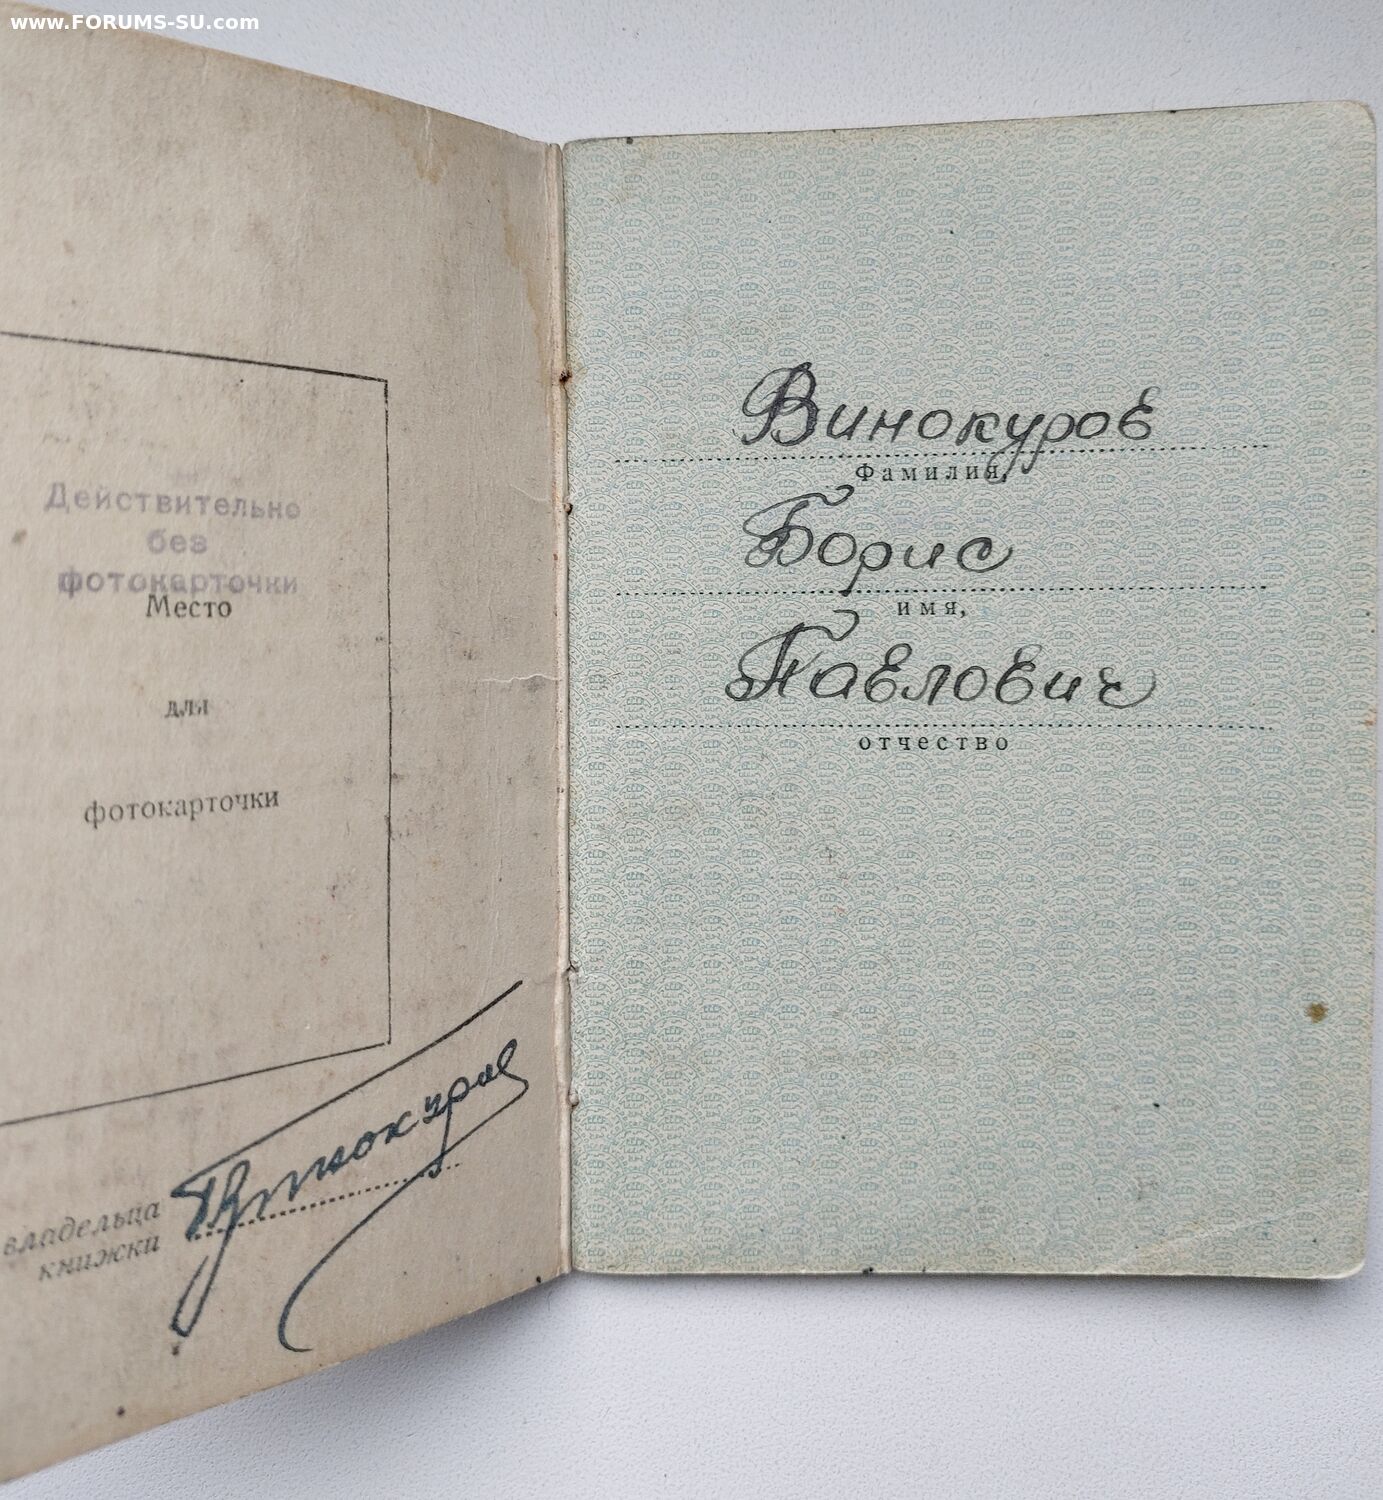 www.FORUMS-SU.com
Действительно
без
фотокарточки
Место
для
фотокарточки
владельца
книжки
Винокуров
Винокуров
Фамилия,
Борис
имя,
Павлович
отчество